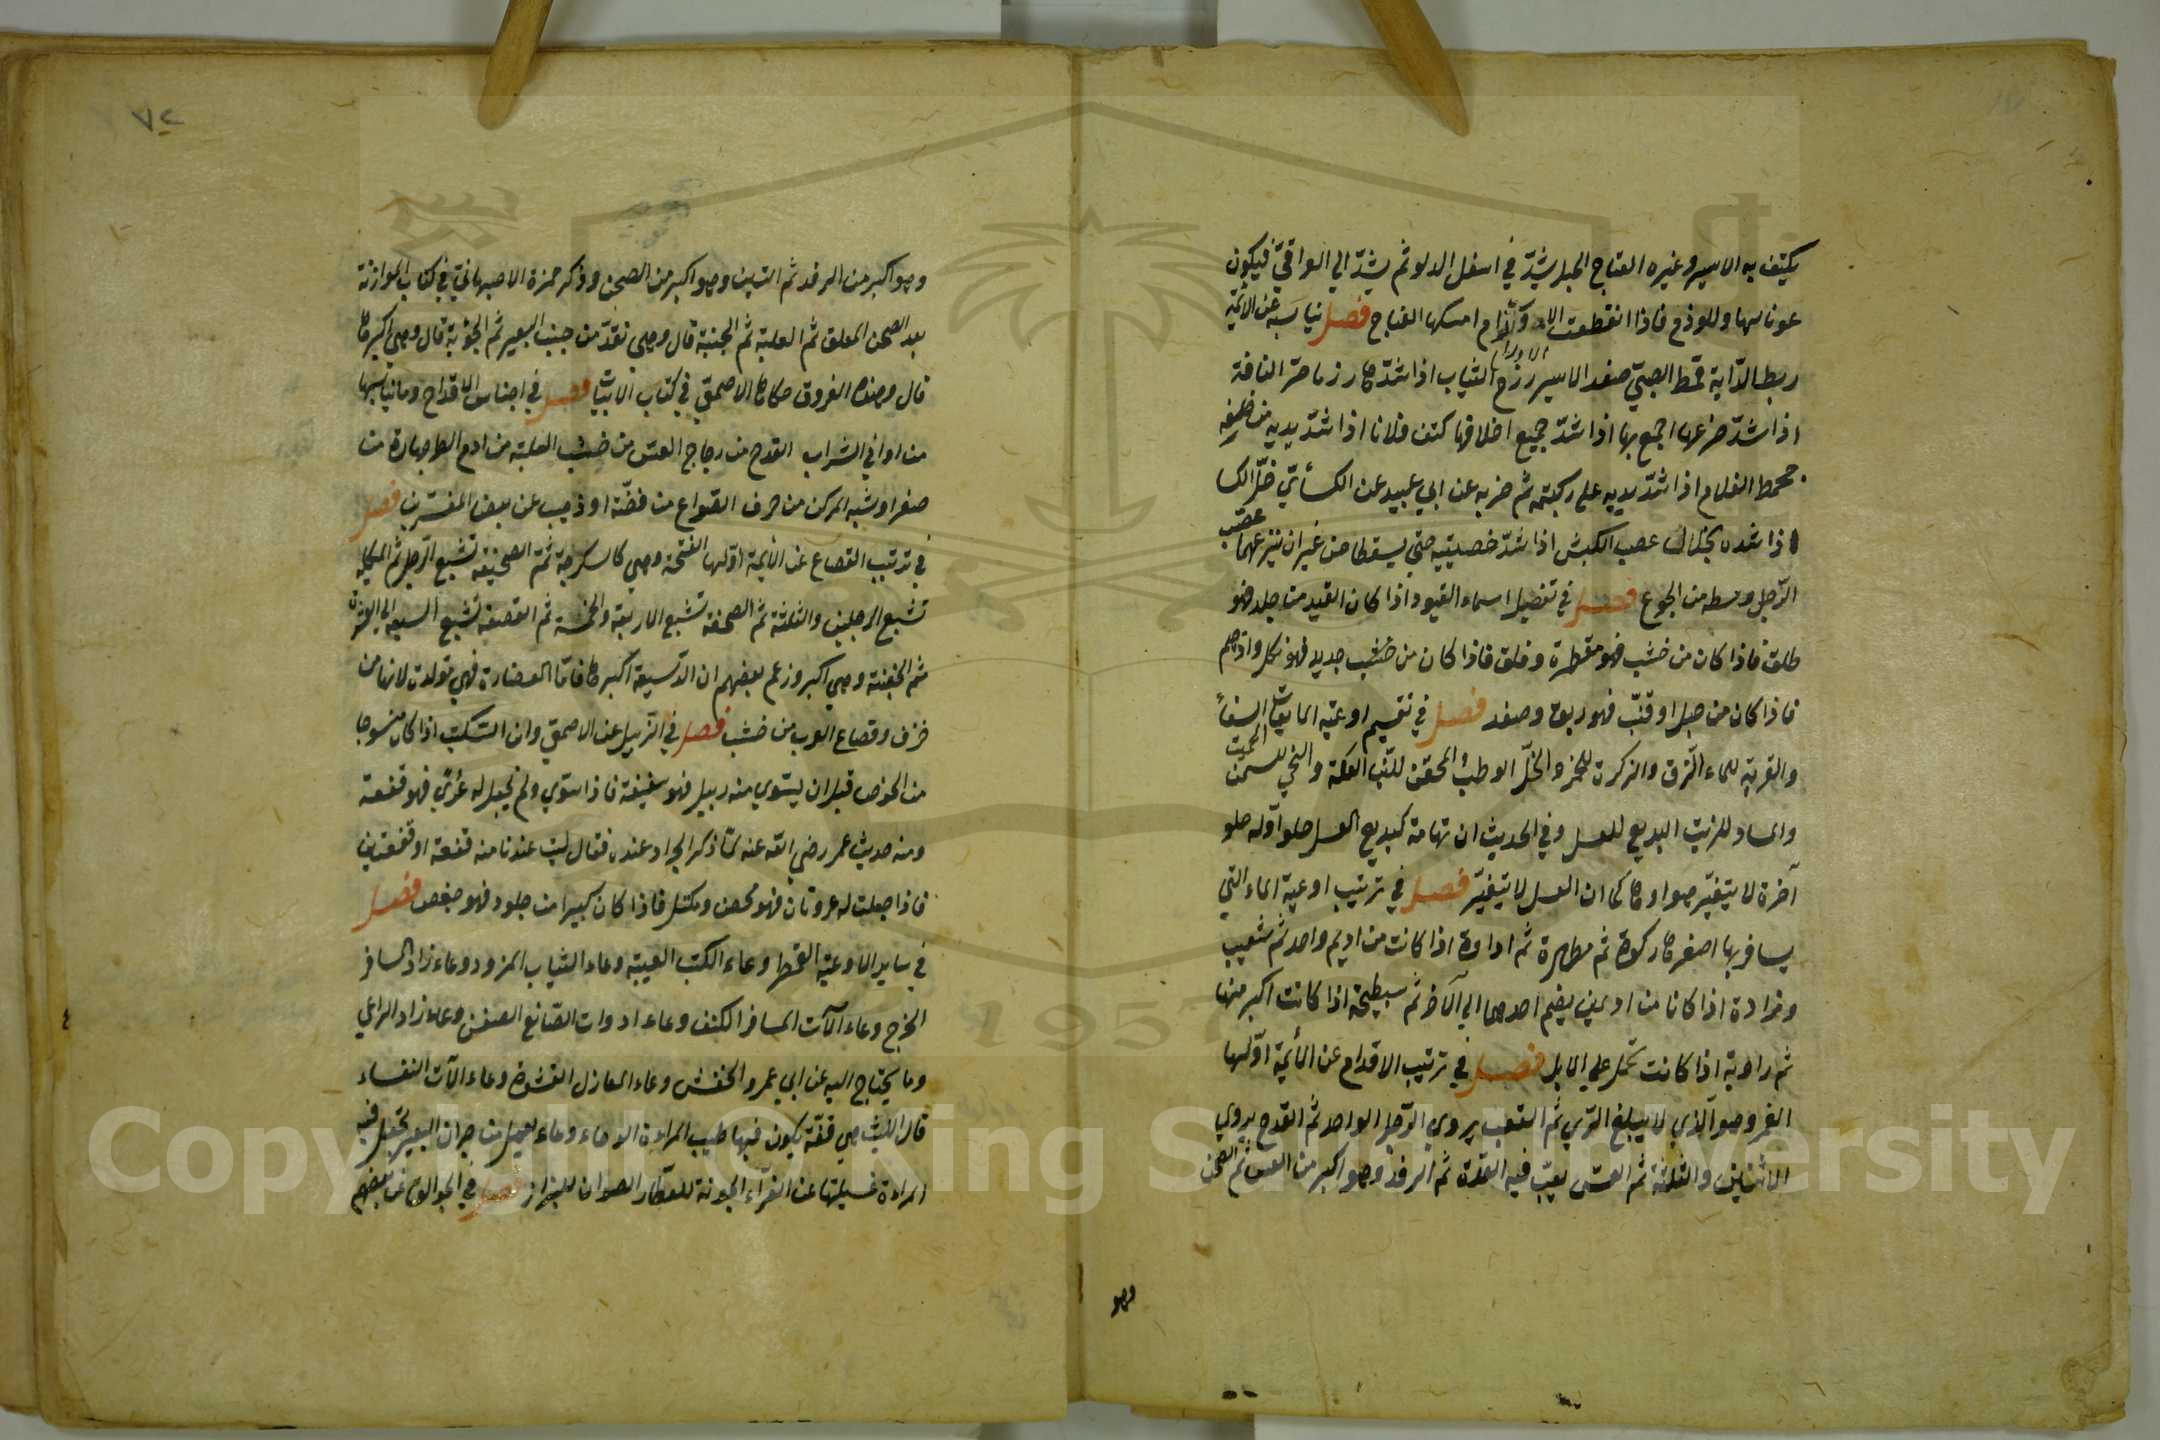 يكتف به الاسير وغيره العناج الحبل يشدّ في اسفل الدلو ثم يشدّ الي العراقيّ فيكون
عونا لها وللوذم فاذا انقطعت الاوذام امسكها العناج فصل يناسبه عن الأئمّة
ربط الدّابة قمط الصبيّ صفد الاسير رزم الثياب اذا شدّها رزما صرّ الناقة
اذا شدّ ضرعها اجمع بها اذا شدّ جميع اخلافها كتف فلانا اذا شدّ يديه من خلفه
جحمظ الغلام اذا شدّ يديه علي ركبتيه ثم ضربه عن ابي عبيد عن الكسأيّ خلّ الكسا
اذا شده بخلال عصب الكبش اذا شدّ خصيتيه حتي يسقطا من غير ان ينزعهما عصّب
الرّجل وسطه من الجوع فصل في تفصيل اسماء القيود اذا كان القيد من جلد فهو
طلق فاذا كان من خشب فهو مقطرة وفلق فاذا كان من حديد فهو نكل وادهم
فاذا كان من حبل او قنّب فهو ربق وصفد فصل في تقسيم اوعية المايعات السقأ
والقربة للماء الزّق والزكرة للخمر والخلّ الوطب والمحقن للبن العكة والنحي للسمن الحميت
والمساد للزيت البديع للعسل وفي الحديث ان تهامة كبديع العسل حلو اوّله حلو
آخره لا يتغيّر هواوها كما ان العسل لا يتغيّر فصل في ترتيب اوعية الماء التي
يسافر بها اصغرها ركوة ثم مطهرة ثم اداوة اذا كانت من اديم واحد ثم شعيب
ومزادة اذا كانا من اديمين يضم احدهما الي الآخر ثم سطيحة اذا كانت اكبر منها
ثم راوية اذا كانت تحمل علي الابل فصل في ترتيب الاقداح عن الأئمّة اوّلها
الغمر وهو الّذي لا يبلغ الرّي ثم القعب يروي الرّجل الواحد ثم القدح يروي
الاثنين والثلثة ثم العسّ يعبّ فيه العدّة ثم الرفد وهو اكبر من العسّ ثم الصحن
وهو
٧٢
وهو اكبر من الرفد ثم التبن وهو اكبر من الصحن وذكر حمزة الاصبهانيّ في كتاب الموازنة
بعد الصحن المعلق ثم العلبة ثم الجنبة قال وهي تقدّ من جنب البعير ثم الحوبة قال وهي اكبرها
قال وهذه الفروق حكاها الاصمعيّ في كتاب الابيات فصل في اجناس الاقداح وما يناسبها
من اواني الشراب القدح من زجاج العسّ من خشب العلبة من ادم الطرجهارة من
صفر او شبه المركن من خزف الصواع من فضّة او ذهب عن بعض المفسّرين فصل
في ترتيب القصاع عن الأئمة اوّلها الفتحة وهي كالسكرجة ثمّ الصحيفة تشبع الرّجل ثم المئكلة
تشبع الرجلين والثلثة ثم الصحفة تشبع الاربعة والخمسة ثم القصعة تشبع السبعة الي العشرة
ثم الجفنة وهي اكبر وزعم بعضهم ان الدّسيعة اكبرها فامّا الغضارة فهي مولدة لانها من
خزف وقصاع العرب من خشب فصل في الزبيل عن الاصمعيّ وابن السّكيت اذا كان منسوجا
من الخوص قبل ان يسوي منه زبيل فهو سفيفة فاذا سوّي ولم يجعل له عُريً فهو قفعة
ومنه حديث عمر رضي الله عنه لمّا ذكر الجراد عنده فقال ليت عندنا منه قفعة او قفعتين
فاذا جعلت له عروتان فهو محصن ومكتل فاذا كان كبيرا من جلود فهو حفص فصل
في ساير الاوعية القمطر وعاء الكتب العيبة وعاء الثياب المزود وعاء زاد المسافر
الخرج وعاء آلات المسافر الكنف وعاء ادوات الصّانع الصفن وعاء زاد الراعي
وما يحتاج اليه عن ابي عمرو الحفش وعاء المغازل القشوة وعاء آلات النفساء
قال الليث هي قفّة يكون فيها طيب المراءة الوعاء وعاء يعمل من جران البعير تجعل فيه
المراءة غسلتها عن الفرّاء الجونة للعطّار الصوان للبزاز فصل في الجوالق عن بعضهم